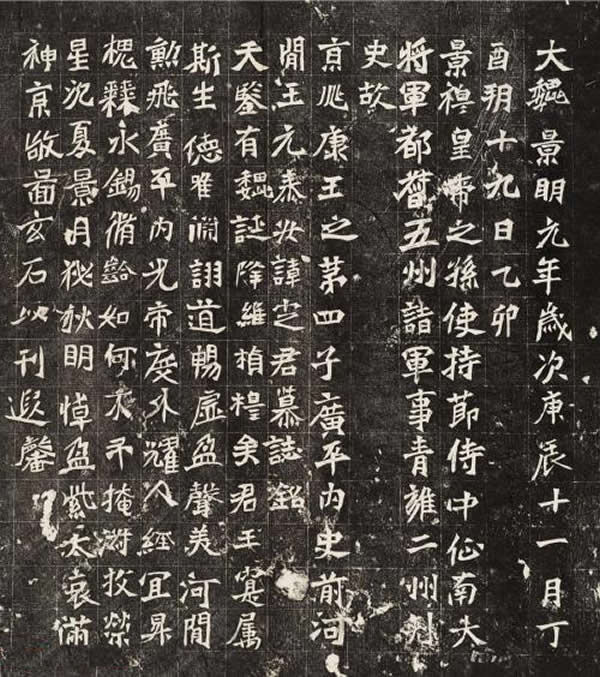 大魏景明元年歲次庚辰十一月丁
酉朔十九日乙卯
景穆皇帝之孫使持節侍中征南大
將軍都督五州諸軍事青雍二州刺
史故
京兆康王之第四子廣平內史前河
間王元泰安諱定君墓誌銘
天鑒有魏誕降維楨穆矣君王寔屬
斯生德唯淵詡道暢虛盈聲美河間
勳飛廣平內光帝度外耀人經宜昇
槐彝永錫脩齡如何不弔掩投榮
星沉夏景月祕秋明悼盈紫天哀滿
神京敬圖玄石以刊遐馨